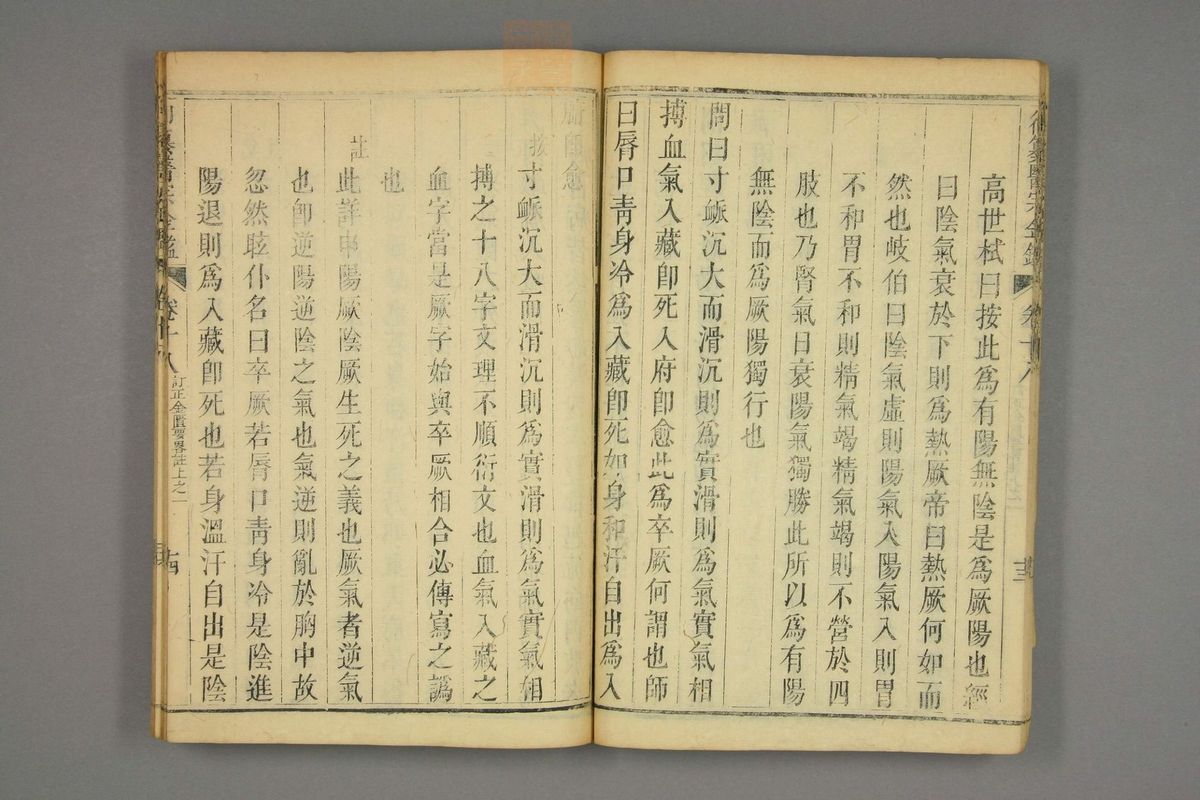 高世栻曰按此為有陽無陰是為厥陽也經
曰陰氣衰於下則為熱厥帝曰熱厥何如而
然也岐伯曰陰氣虛則陽氣入陽氣入則胃
不和胃不和則精氣竭精氣竭則不營於四
肢也乃腎氣日衰陽氣獨勝此所以為有陽
無陰而為厥陽獨行也
問曰寸脈沉大而滑沉則為實滑則為氣實氣相
搏血氣入藏卽死入府卽愈此為卒厥何謂也師
曰脣口靑身冷為入藏卽死如身和汗自出為入
府卽愈
按寸脈沉大而滑沉則為實滑則為氣實氣相
搏之十八字文理不順衍文也血氣入藏之
血字當是厥字始與卒厥相合必傳寫之譌
也
註此詳申陽厥陰厥生死之義也厥氣者逆氣
也卽逆陽逆陰之氣也氣逆則亂於胸中故
忽然眩仆名曰卒厥若脣口靑身冷是陰進
陽退則為入藏卽死也若身溫汗自出是陰
卷十八
訂正金匱要畧註上之一
十四